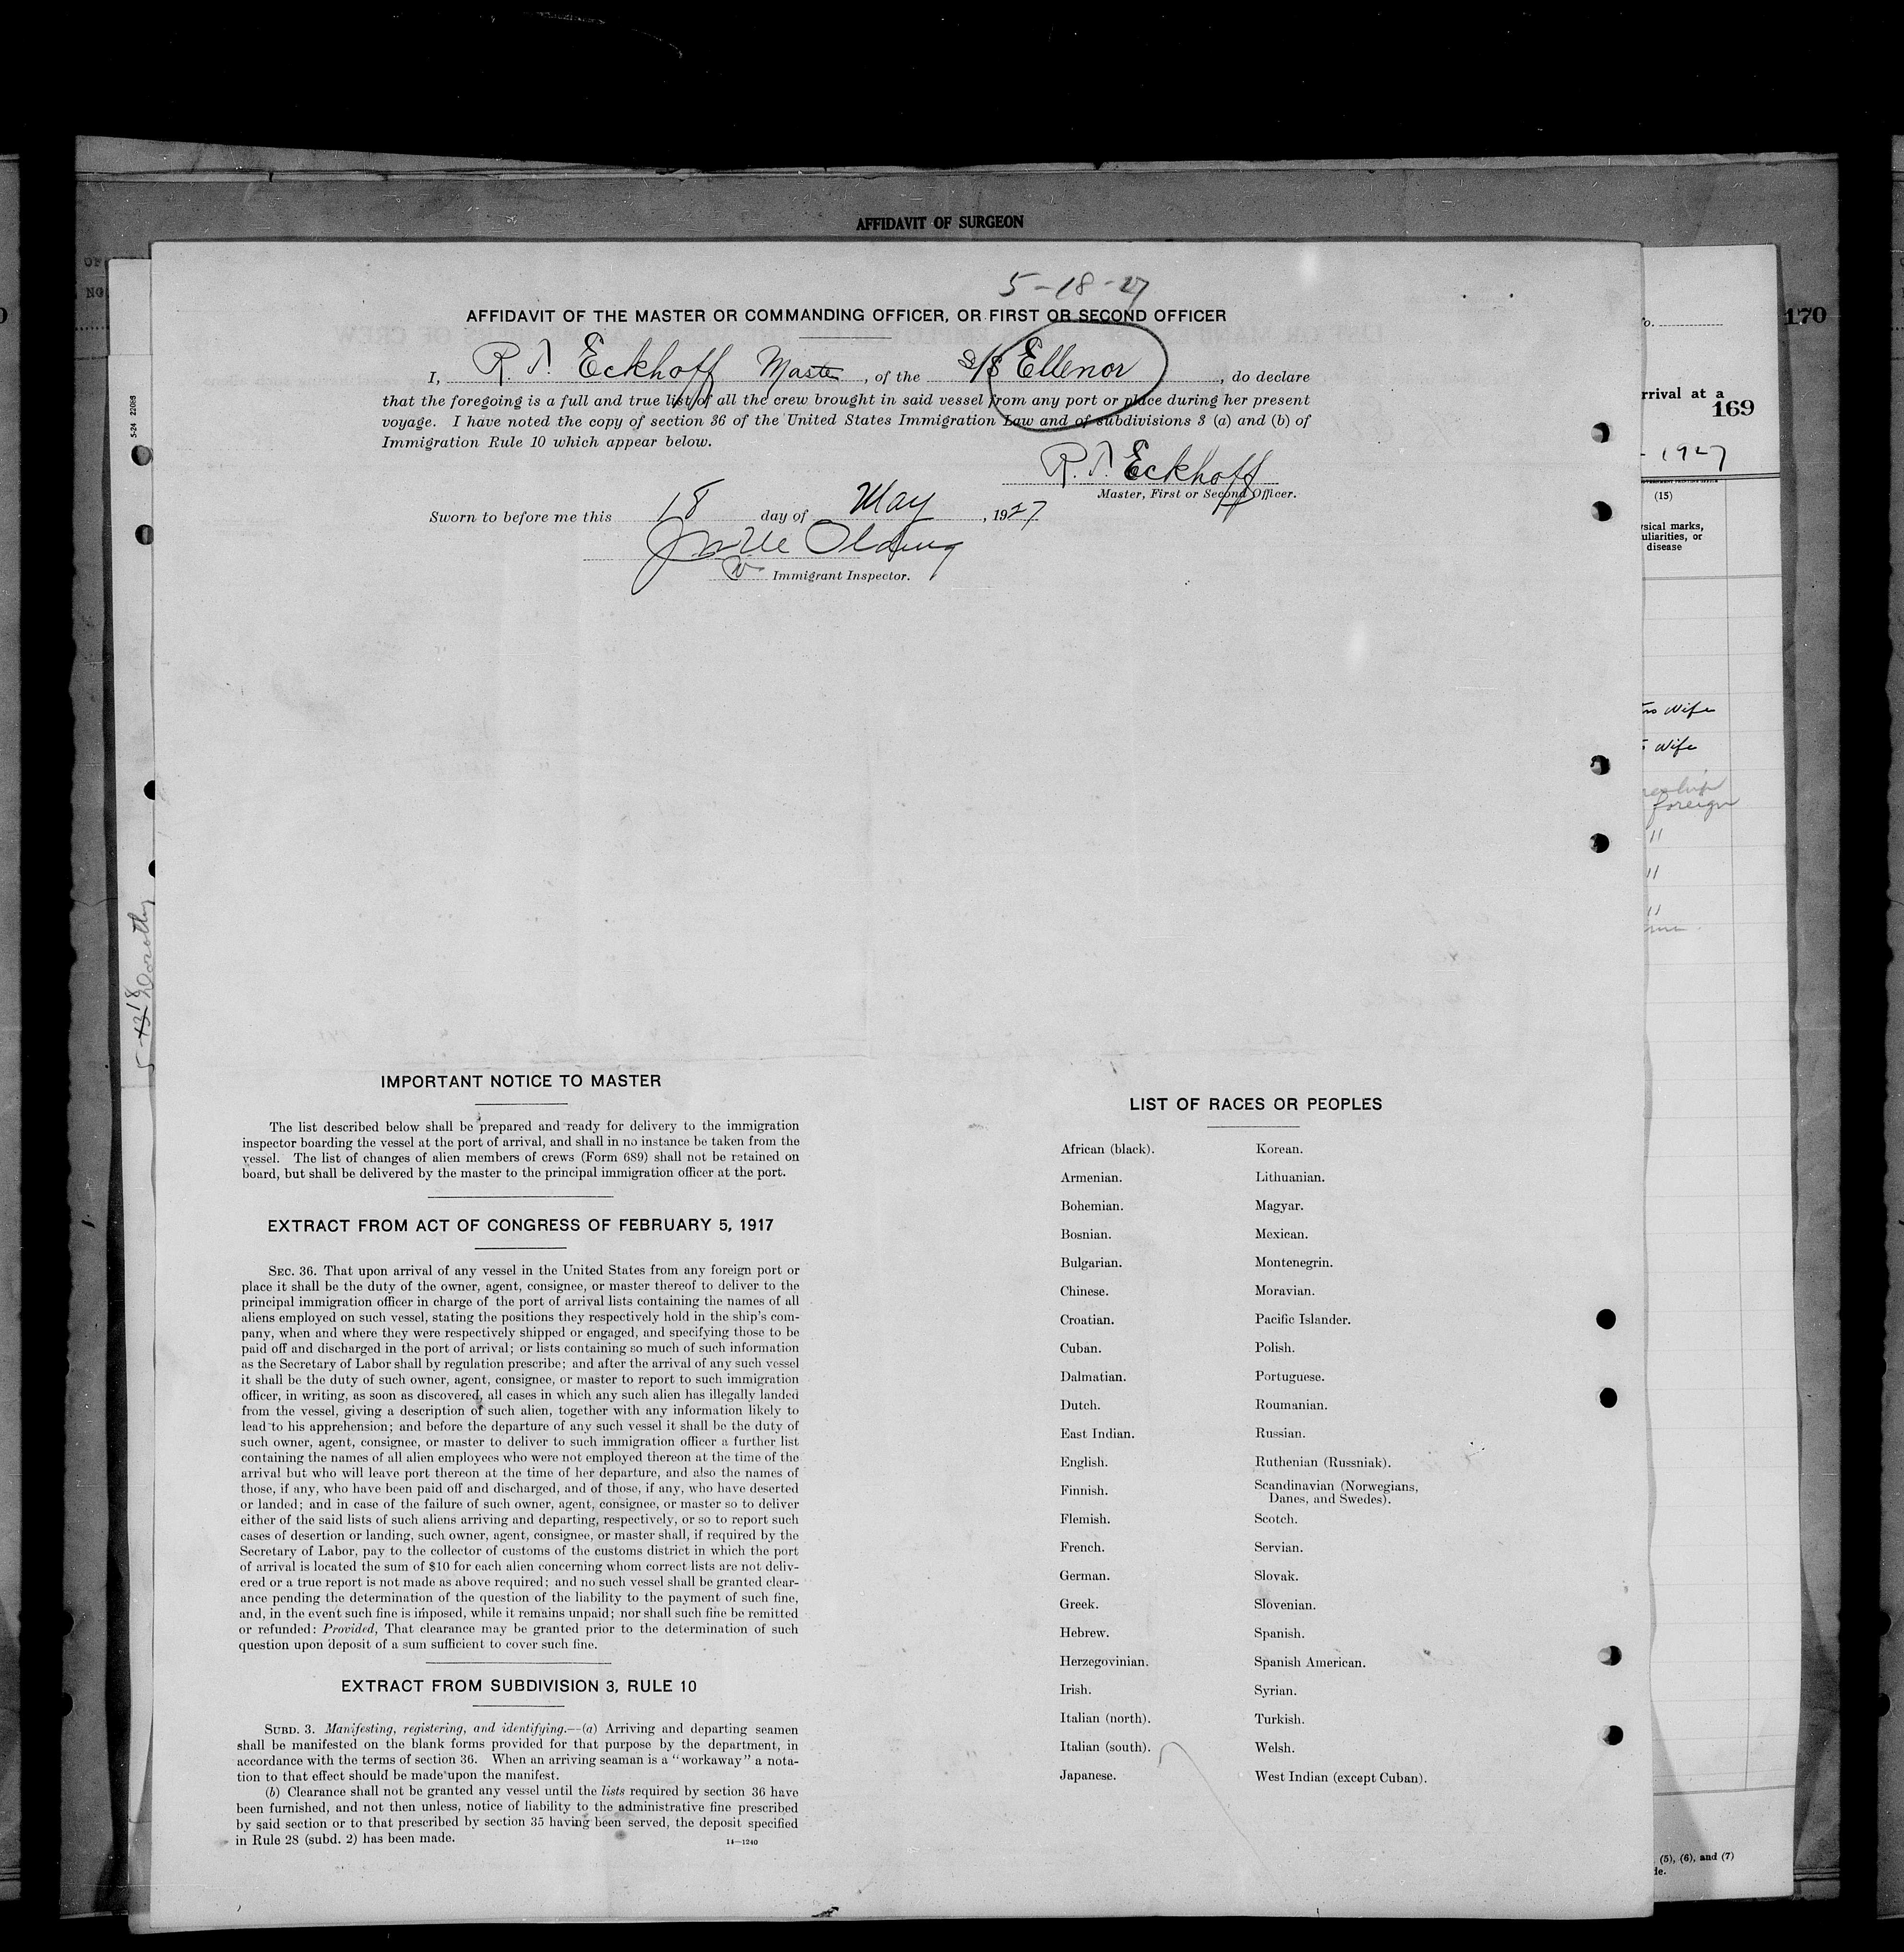 AFFIDAVIT OF SURGEON
OF
NO
170
169
5-24 22088
5-18-27
AFFIDAVIT OF THE MASTER OR COMMANDING OFFICER, OR FIRST OR SECOND OFFICER
I, R. T. Eckhoff Master, of the S/S Ellenor, do declare
that the foregoing is a full and true list of all the crew brought in said vessel from any port or place during her present
voyage. I have noted the copy of section 36 of the United States Immigration Law and of subdivisions 3 (a) and (b) of
Immigration Rule 10 which appear below.
R. T. Eckhoff
Master, First or Second Officer.
Sworn to before me this 18 day of May, 1927
Immigrant Inspector.
rrival at a
- 1927
(15)
sical marks,
uliarities, or
disease
Wife
Wife
foreign
"
"
"
5-18
Dorothy
IMPORTANT NOTICE TO MASTER
The list described below shall be prepared and ready for delivery to the immigration
inspector boarding the vessel at the port of arrival, and shall in no instance be taken from the
vessel. The list of changes of alien members of crews (Form 689) shall not be retained on
board, but shall be delivered by the master to the principal immigration officer at the port.
EXTRACT FROM ACT OF CONGRESS OF FEBRUARY 5, 1917
SEC. 36. That upon arrival of any vessel in the United States from any foreign port or
place it shall be the duty of the owner, agent, consignee, or master thereof to deliver to the
principal immigration officer in charge of the port of arrival lists containing the names of all
aliens employed on such vessel, stating the positions they respectively hold in the ship's com-
pany, when and where they were respectively shipped or engaged, and specifying those to be
paid off and discharged in the port of arrival; or lists containing so much of such information
as the Secretary of Labor shall by regulation prescribe; and after the arrival of any such vessel
it shall be the duty of such owner, agent, consignee, or master to report to such immigration
officer, in writing, as soon as discovered, all cases in which any such alien has illegally landed
from the vessel, giving a description of such alien, together with any information likely to
lead to his apprehension; and before the departure of any such vessel it shall be the duty of
such owner, agent, consignee, or master to deliver to such immigration officer a further list
containing the names of all alien employees who were not employed thereon at the time of the
arrival but who will leave port thereon at the time of her departure, and also the names of
those, if any, who have been paid off and discharged, and of those, if any, who have deserted
or landed; and in case of the failure of such owner, agent, consignee, or master so to deliver
either of the said lists of such aliens arriving and departing, respectively, or so to report such
cases of desertion or landing, such owner, agent, consignee, or master shall, if required by the
Secretary of Labor, pay to the collector of customs of the customs district in which the port
of arrival is located the sum of $10 for each alien concerning whom correct lists are not deliv-
ered or a true report is not made as above required; and no such vessel shall be granted clear-
ance pending the determination of the question of the liability to the payment of such fine,
and, in the event such fine is imposed, while it remains unpaid; nor shall such fine be remitted
or refunded: Provided, That clearance may be granted prior to the determination of such
question upon deposit of a sum sufficient to cover such fine.
EXTRACT FROM SUBDIVISION 3, RULE 10
SUBD. 3. Manifesting, registering, and identifying.—(a) Arriving and departing seamen
shall be manifested on the blank forms provided for that purpose by the department, in
accordance with the terms of section 36. When an arriving seaman is a "workaway" a nota-
tion to that effect should be made upon the manifest.
(b) Clearance shall not be granted any vessel until the lists required by section 36 have
been furnished, and not then unless, notice of liability to the administrative fine prescribed
by said section or to that prescribed by section 35 having been served, the deposit specified
in Rule 28 (subd. 2) has been made.
14—1240
LIST OF RACES OR PEOPLES
African (black).
Armenian.
Bohemian.
Bosnian.
Bulgarian.
Chinese.
Croatian.
Cuban.
Dalmatian.
Dutch.
East Indian.
English.
Finnish.
Flemish.
French.
German.
Greek.
Hebrew.
Herzegovinian.
Irish.
Italian (north).
Italian (south).
Japanese.
Korean.
Lithuanian.
Magyar.
Mexican.
Montenegrin.
Moravian.
Pacific Islander.
Polish.
Portuguese.
Roumanian.
Russian.
Ruthenian (Russniak).
Scandinavian (Norwegians,
Danes, and Swedes).
Scotch.
Servian.
Slovak.
Slovenian.
Spanish.
Spanish American.
Syrian.
Turkish.
Welsh.
West Indian (except Cuban).
(5), (6), and (7)